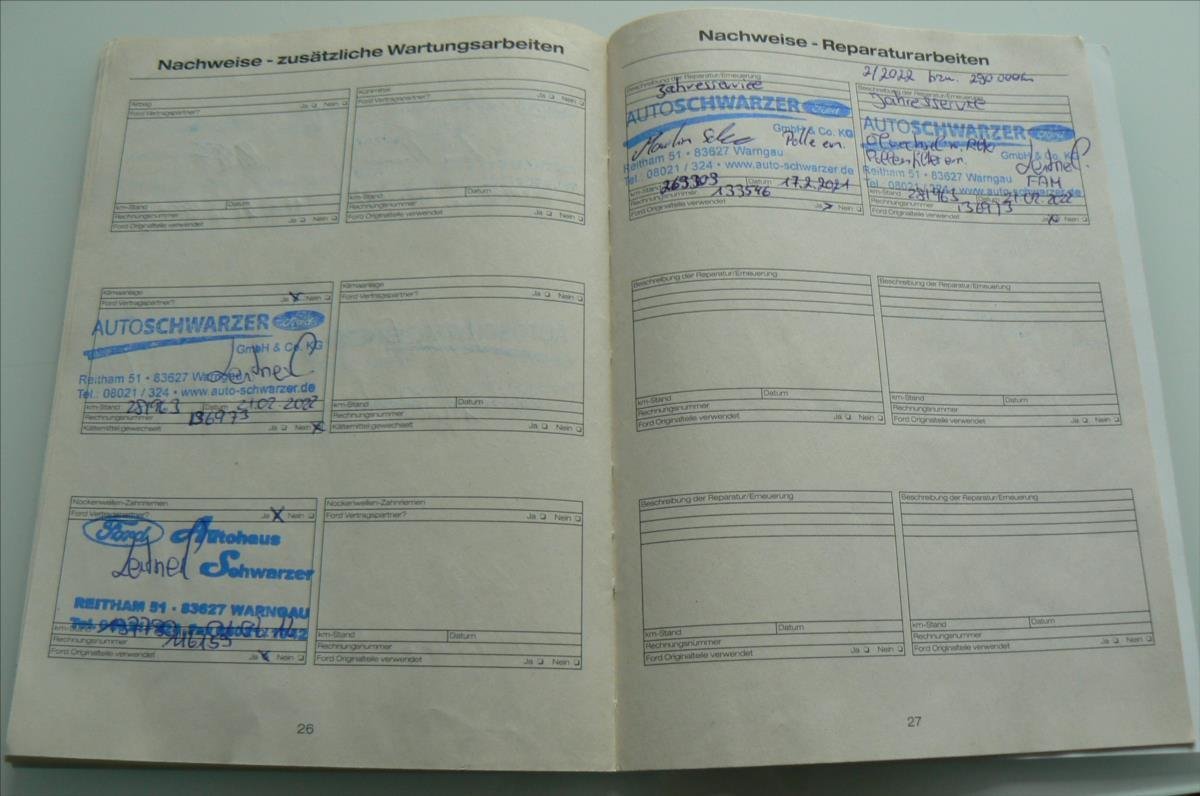 Nachweise - zusätzliche Wartungsarbeiten
Airbag
Ford Vertragspartner? Ja Nein
km-Stand Datum
Rechnungsnummer
Ford Originalteile verwendet Ja Nein
Kühlmittel
Ford Vertragspartner? Ja Nein
km-Stand Datum
Rechnungsnummer
Ford Originalteile verwendet Ja Nein
Klimaanlage
Ford Vertragspartner? Ja X Nein
AUTOSCHWARZER Ford
GmbH & Co. KG
Reitham 51 • 83627 Warngau
Tel.: 08021 / 324 • www.auto-schwarzer.de
km-Stand 281963 Datum 21.02.2022
Rechnungsnummer 136973
Kältemittel gewechselt Ja Nein X
Klimaanlage
Ford Vertragspartner? Ja Nein
km-Stand Datum
Rechnungsnummer
Kältemittel gewechselt Ja Nein
Nockenwellen-Zahnriemen
Ford Vertragspartner? Ja X Nein
Ford Autohaus
Schwarzer
REITHAM 51 · 83627 WARNGAU
km-Stand
Rechnungsnummer 116153
Ford Originalteile verwendet Ja X Nein
Nockenwellen-Zahnriemen
Ford Vertragspartner? Ja Nein
km-Stand Datum
Rechnungsnummer
Ford Originalteile verwendet Ja Nein
26
Nachweise - Reparaturarbeiten
Beschreibung der Reparatur/Erneuerung
Jahresservice
AUTOSCHWARZER Ford
GmbH & Co. KG
Polle ern.
Reitham 51 • 83627 Warngau
Tel.: 08021 / 324 • www.auto-schwarzer.de
km-Stand 263303 Datum 17.2.2021
Rechnungsnummer 133546
Ford Originalteile verwendet Ja Nein
2/2022 bzw. 290 000km
Beschreibung der Reparatur/Erneuerung
Jahresservice
AUTOSCHWARZER Ford
Ölwechsel m. Filter
GmbH & Co. KG
Pollenfilter ern.
Reitham 51 • 83627 Warngau
FAM
Tel.: 08021 / 324 • www.auto-schwarzer.de
km-Stand 281963 Datum 21.02.2022
Rechnungsnummer 136973
Ford Originalteile verwendet Ja X Nein
Beschreibung der Reparatur/Erneuerung
km-Stand Datum
Rechnungsnummer
Ford Originalteile verwendet Ja Nein
Beschreibung der Reparatur/Erneuerung
km-Stand Datum
Rechnungsnummer
Ford Originalteile verwendet Ja Nein
Beschreibung der Reparatur/Erneuerung
km-Stand Datum
Rechnungsnummer
Ford Originalteile verwendet Ja Nein
Beschreibung der Reparatur/Erneuerung
km-Stand Datum
Rechnungsnummer
Ford Originalteile verwendet Ja Nein
27